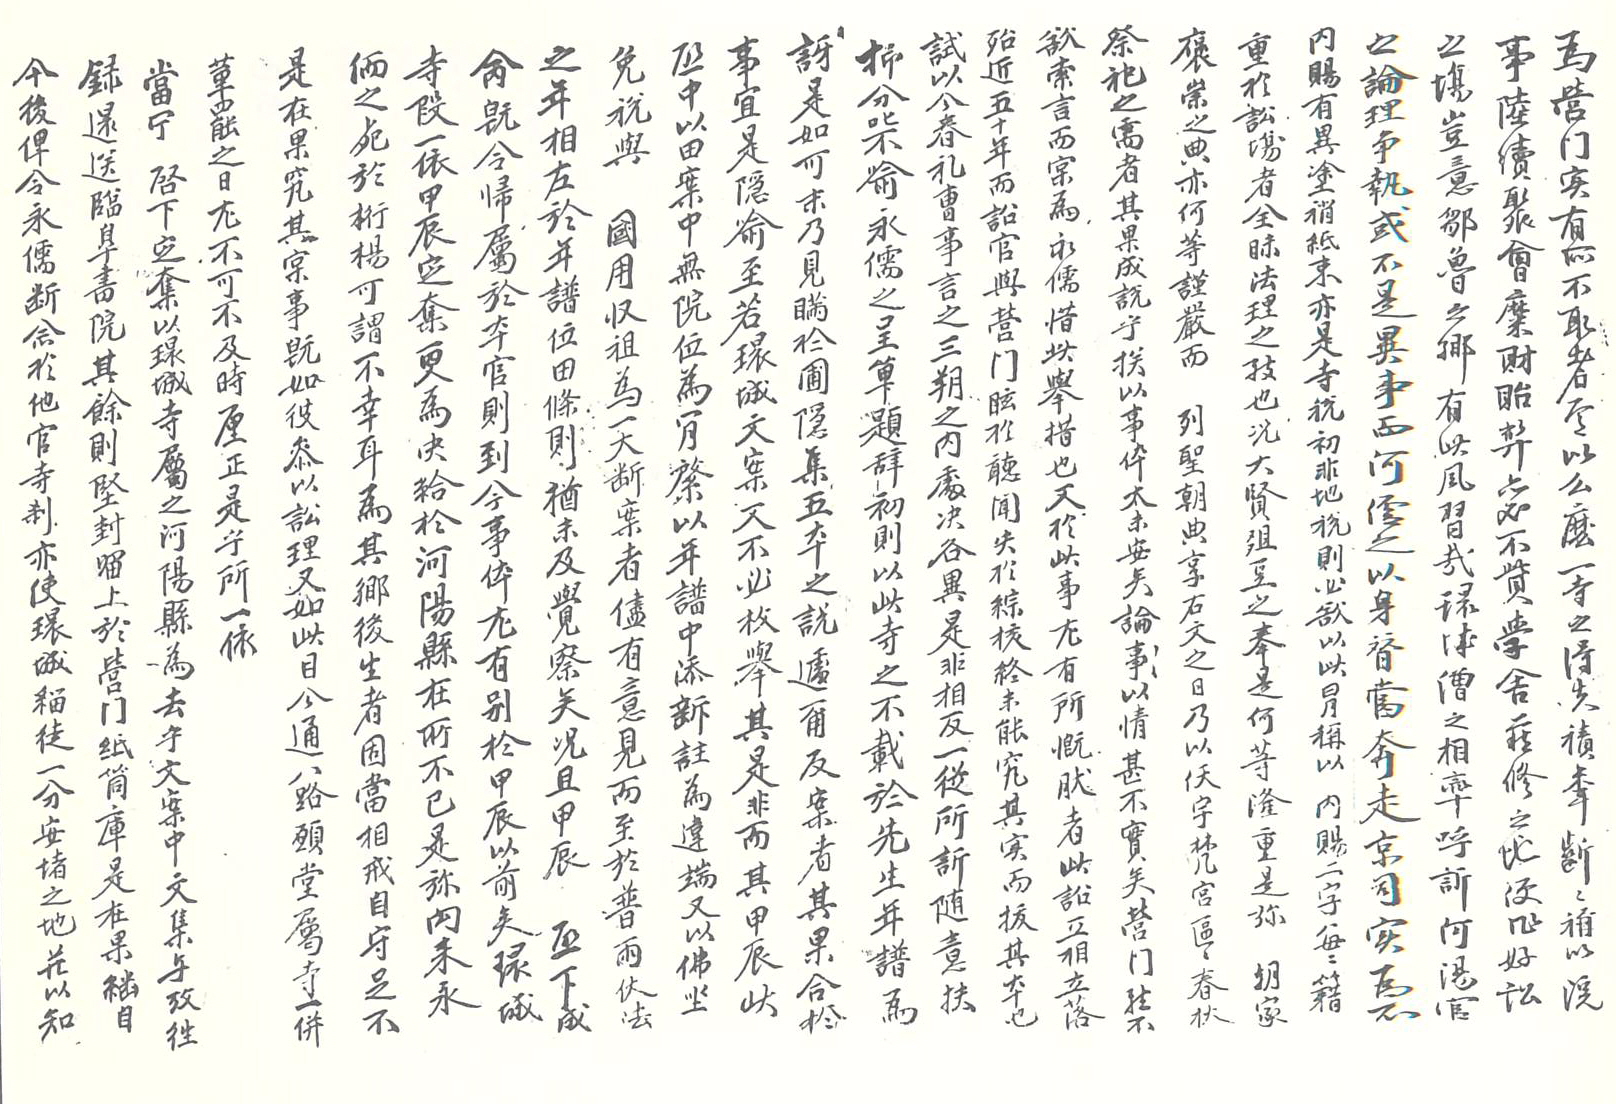 爲營門實有所不取者層以么麽一寺之得失積年斷斷稱以院
事陸續聚會糜財貽弊亦必不貲學舍藏修之地便作好訟
之場豈意鄒魯之鄕 有此風習哉環城僧之相率呼訴河陽官
之論理爭執或不是異事而河儒之以身替當奔走京司實爲不
內賜有異塗褙紙束亦是寺稅初非地稅則必欲以此冒稱以 內賜二字每每籍
重於訟場者全昧法理之致也況大賢俎豆之奉是何等隆重是㫆 朝家
褒崇之典亦何等謹嚴而 列聖朝典享石文之日乃以仸字梵宮區區春秋
祭祀之需者其果成說乎揆以事体太未安矣論事以情甚不實矣營門雖不
欲索言而深爲永儒惜此擧措也又於此事尤有所慨肰者此訟互相立落
殆近五十年而訟官與營門眩於聽聞失於綜核終未能究其實而拔其本也
試以今春礼曹事言之三朔之內處決各異是非相反一從所訴隨意扶
抑分叱不喩永儒之呈單題辭初則以此寺之不載於先生年譜爲
訝是如可末乃見瞞於圃隱集五本之說遽爾反案者其果合於
事宜是隱喩至若環城文案又不必枚擧其是非而其甲辰此
啓中以田案中無院位爲肯綮以年譜中添新註爲違端又以佛坐
免稅與 國用収租爲一大斷案者儘有意見而至於普雨伏法
之年相左於年譜位田條則猶未及覺察矣況且甲辰 啓下成
命旣令歸屬於本官則到今事体尤有別於甲辰以前矣環城
寺段一依甲辰定奪更爲決給於河陽縣在所不已是㫆閔秉永
偭之死於桁楊可謂不幸耳爲其鄕後生者固當相戒自守足不
是在果究其深事旣如彼叅以訟理又如此目今通八路願堂屬寺一倂
革罷之日尤不可不及時厘正是乎所一依
當宁 啓下定奪以環城寺屬之河陽縣爲去乎文案中文集与攷徃
錄還送臨皐書院其餘則堅封留上於營門紙筒庫是在果繼自
今後俾令永儒斷念於他官寺刹亦使環城緇徒一分安堵之地茫以知